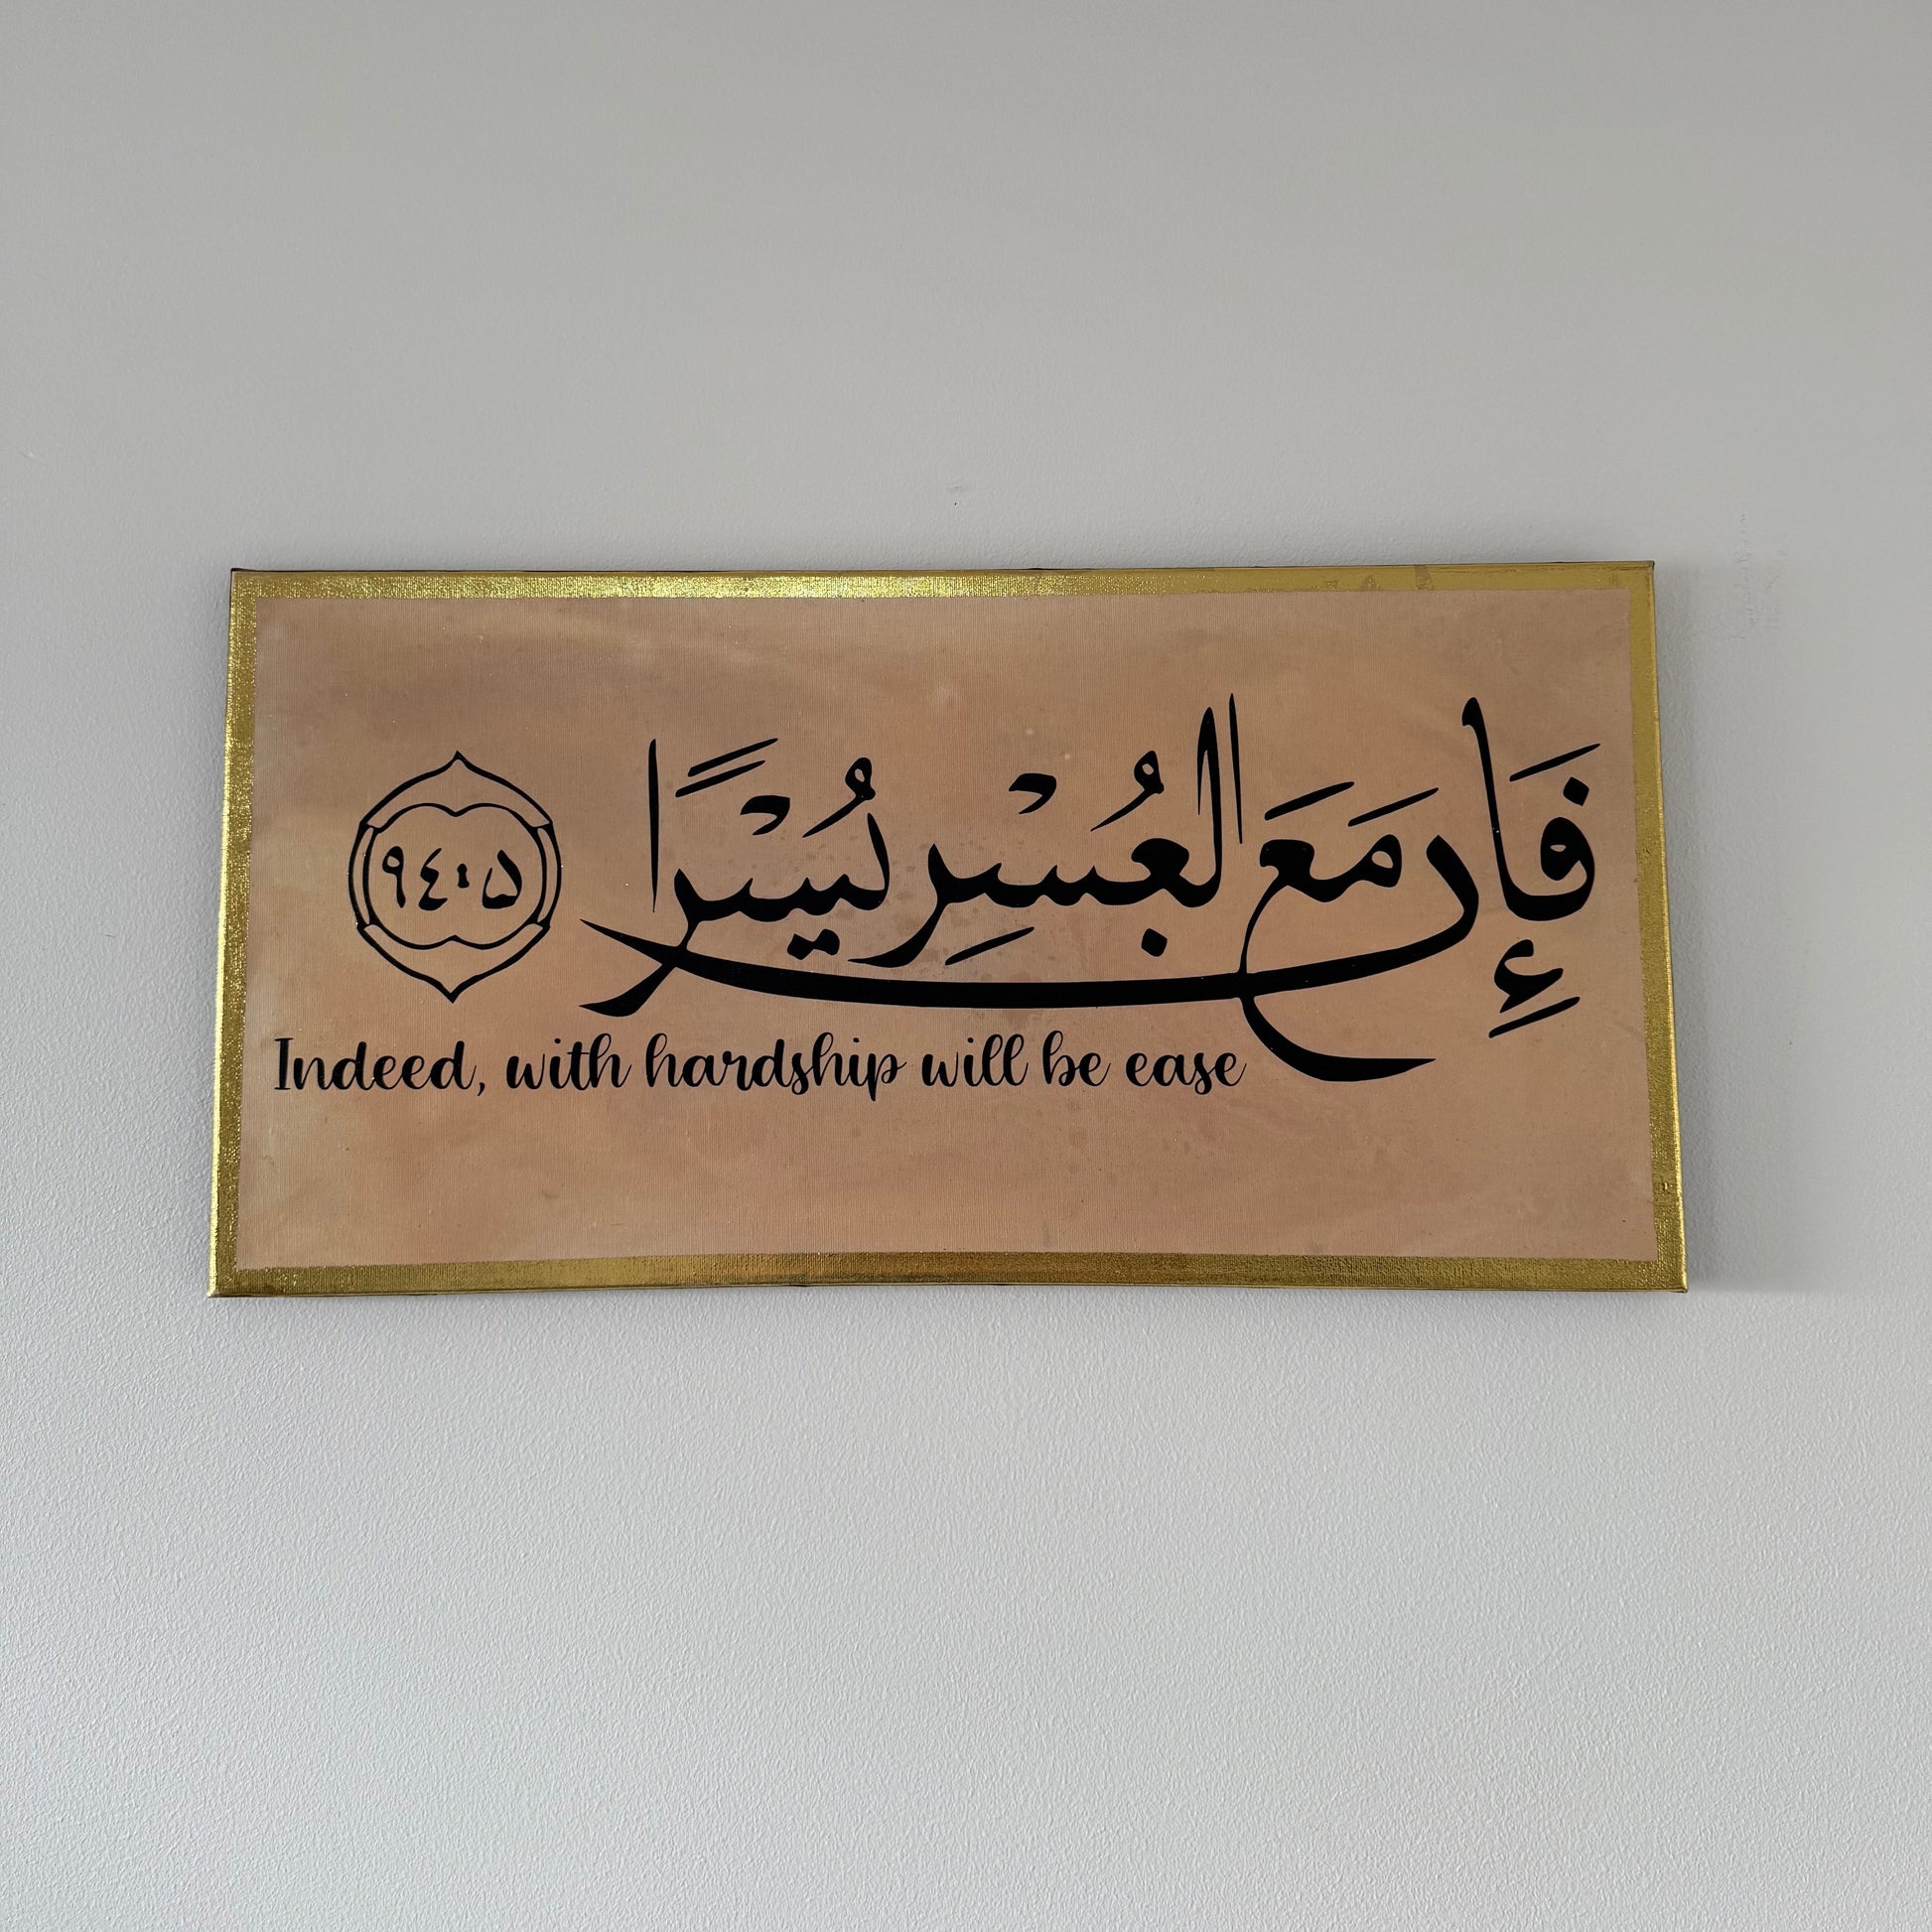 فَإِن مَعَ العُسْرِ يُسْرًا ٩٤:٥
Indeed, with hardship will be ease